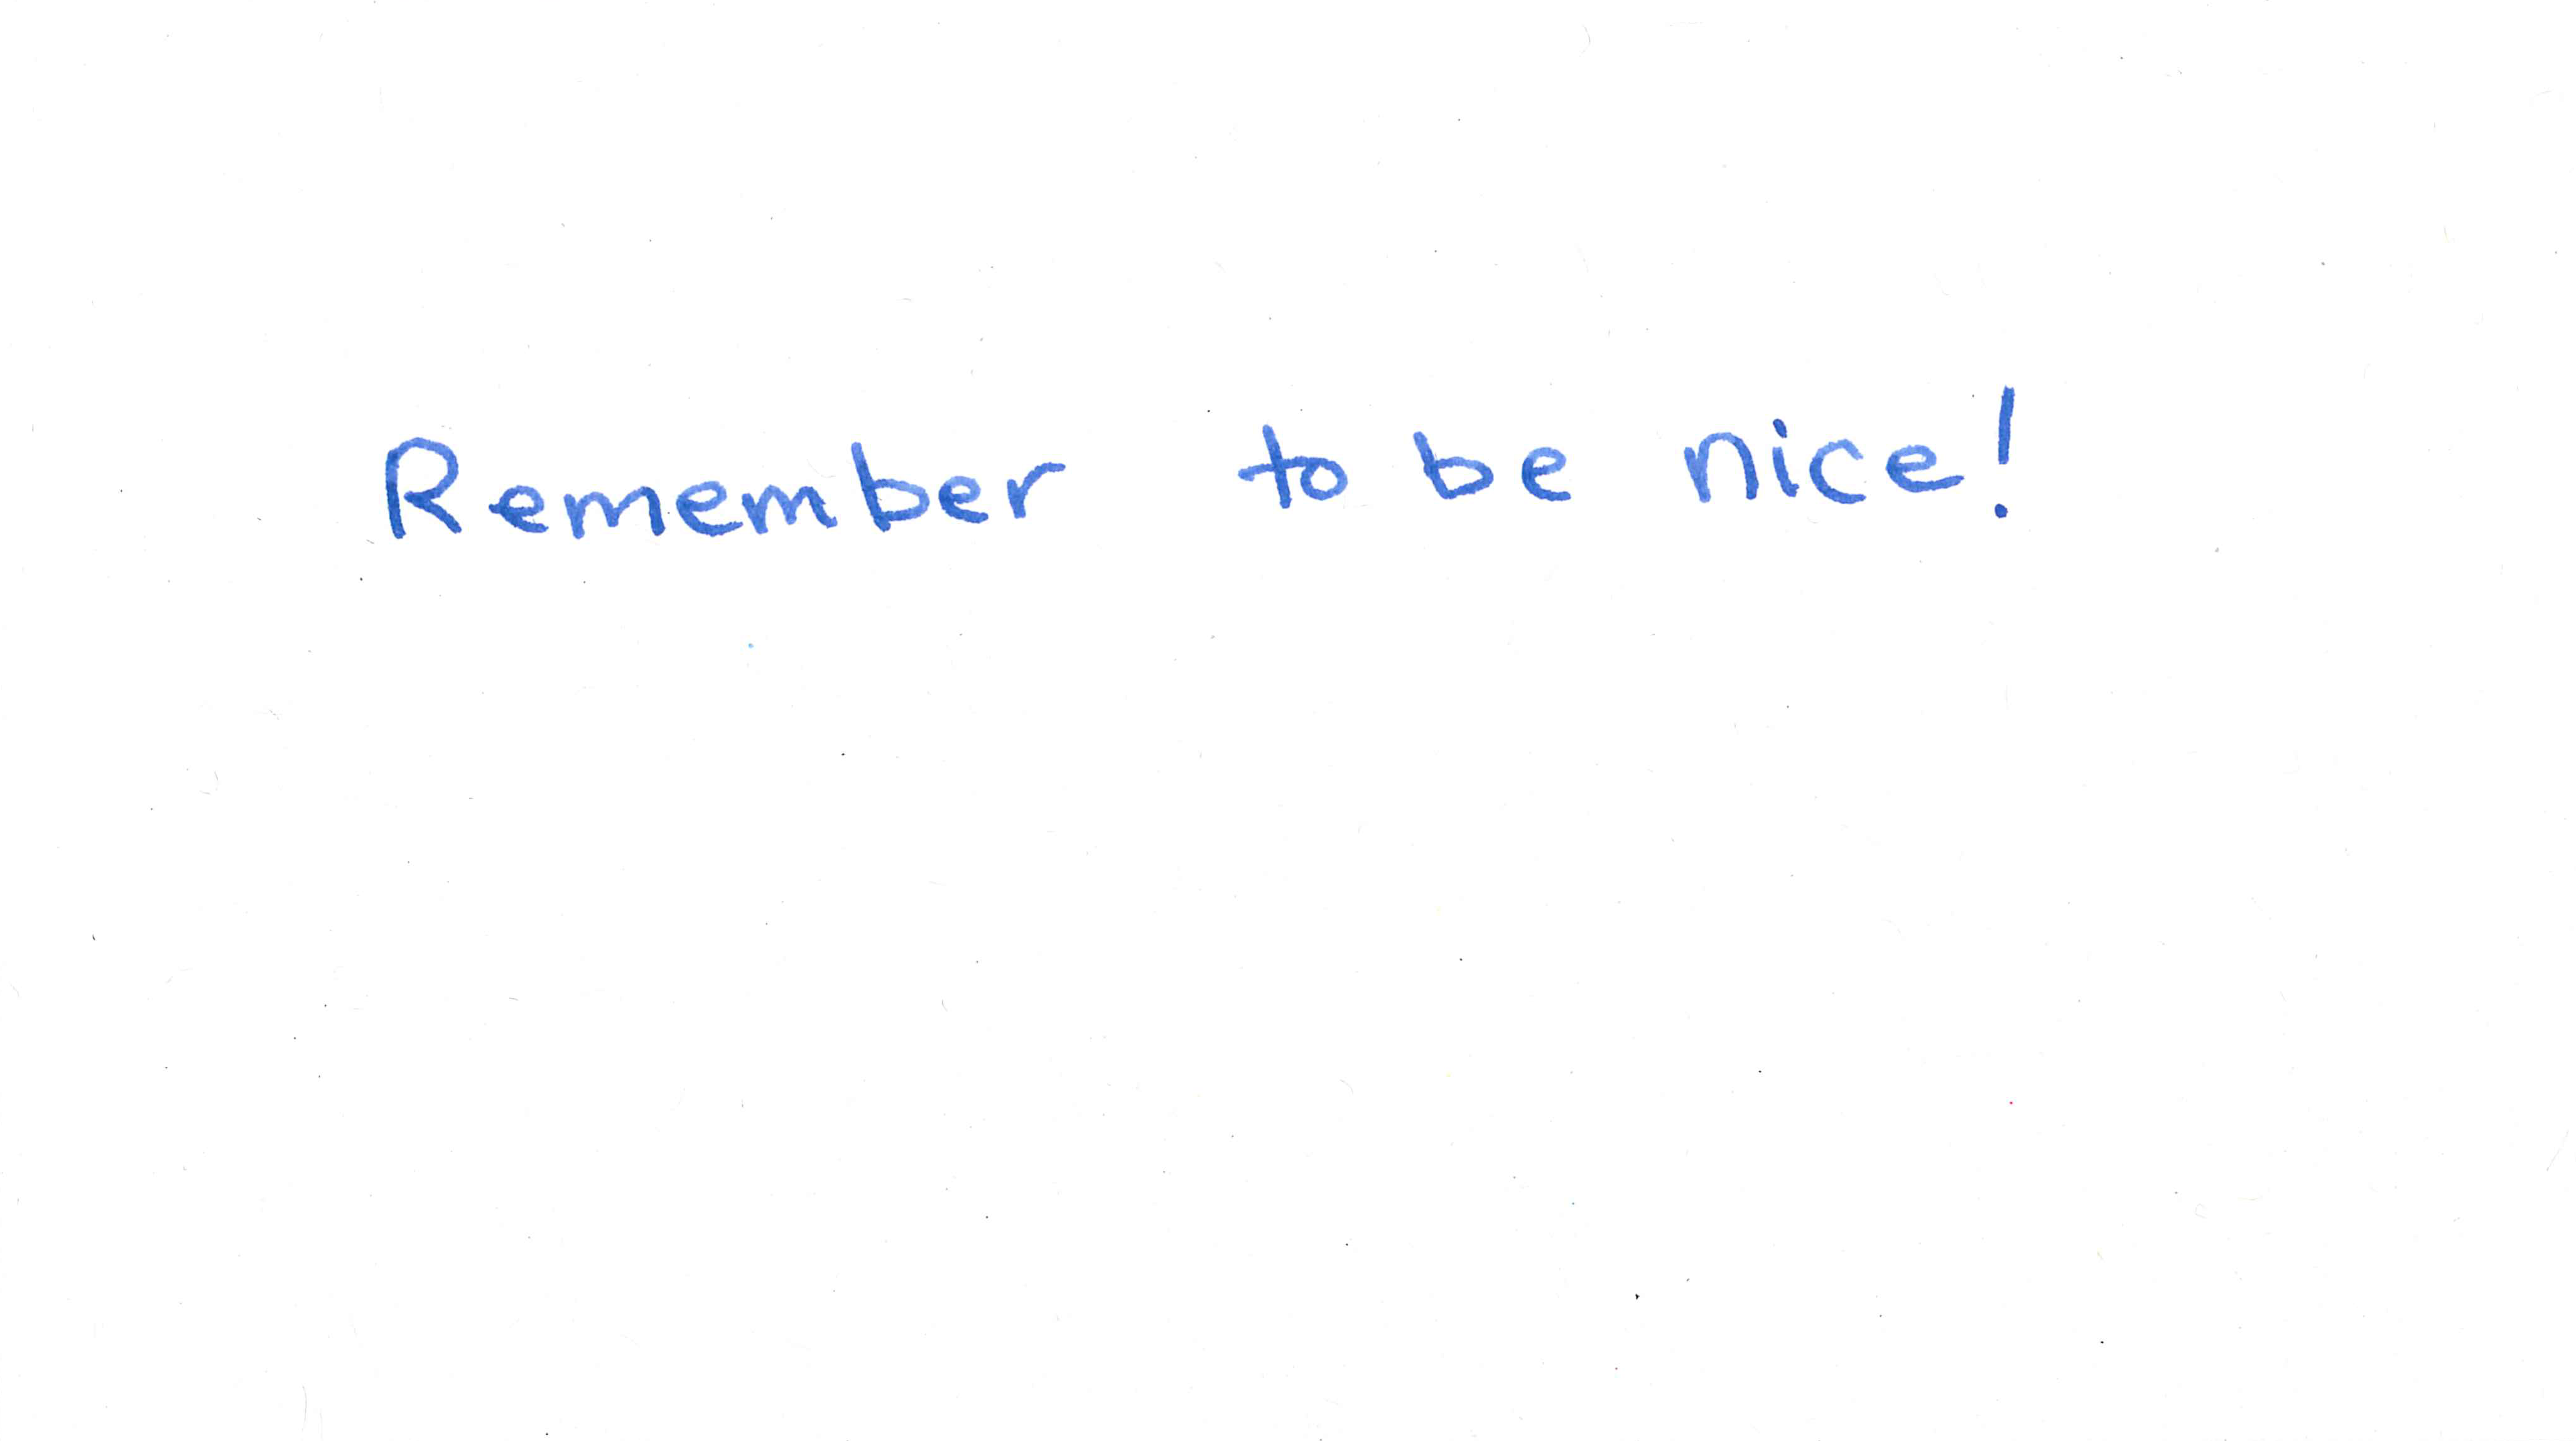 Remember to be nice!